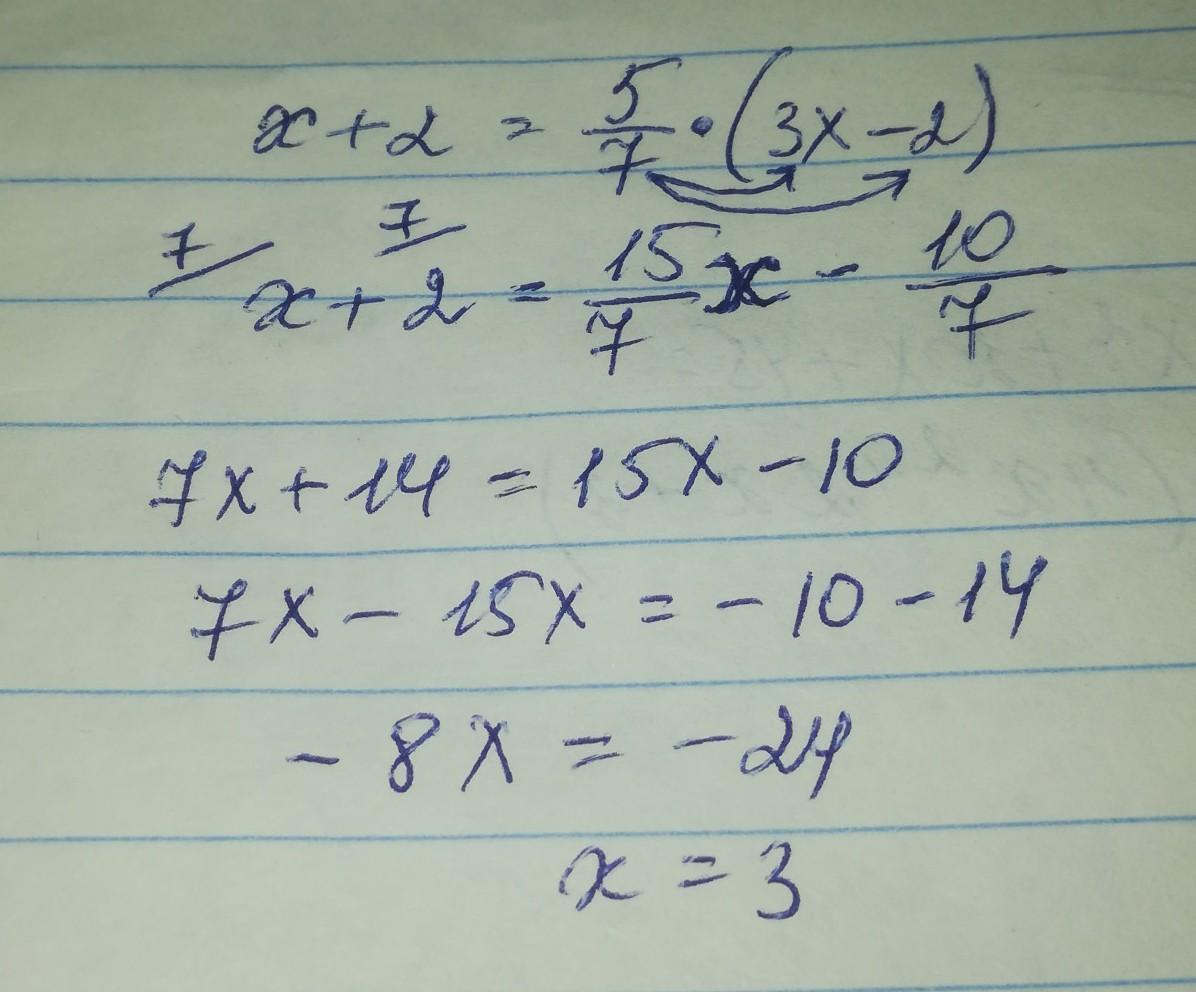 x + 2 = 5/7 · (3x - 2)
7/ x + 7/ 2 = 15/7 x - 10/7
7x + 14 = 15x - 10
7x - 15x = -10 - 14
-8x = -24
x = 3